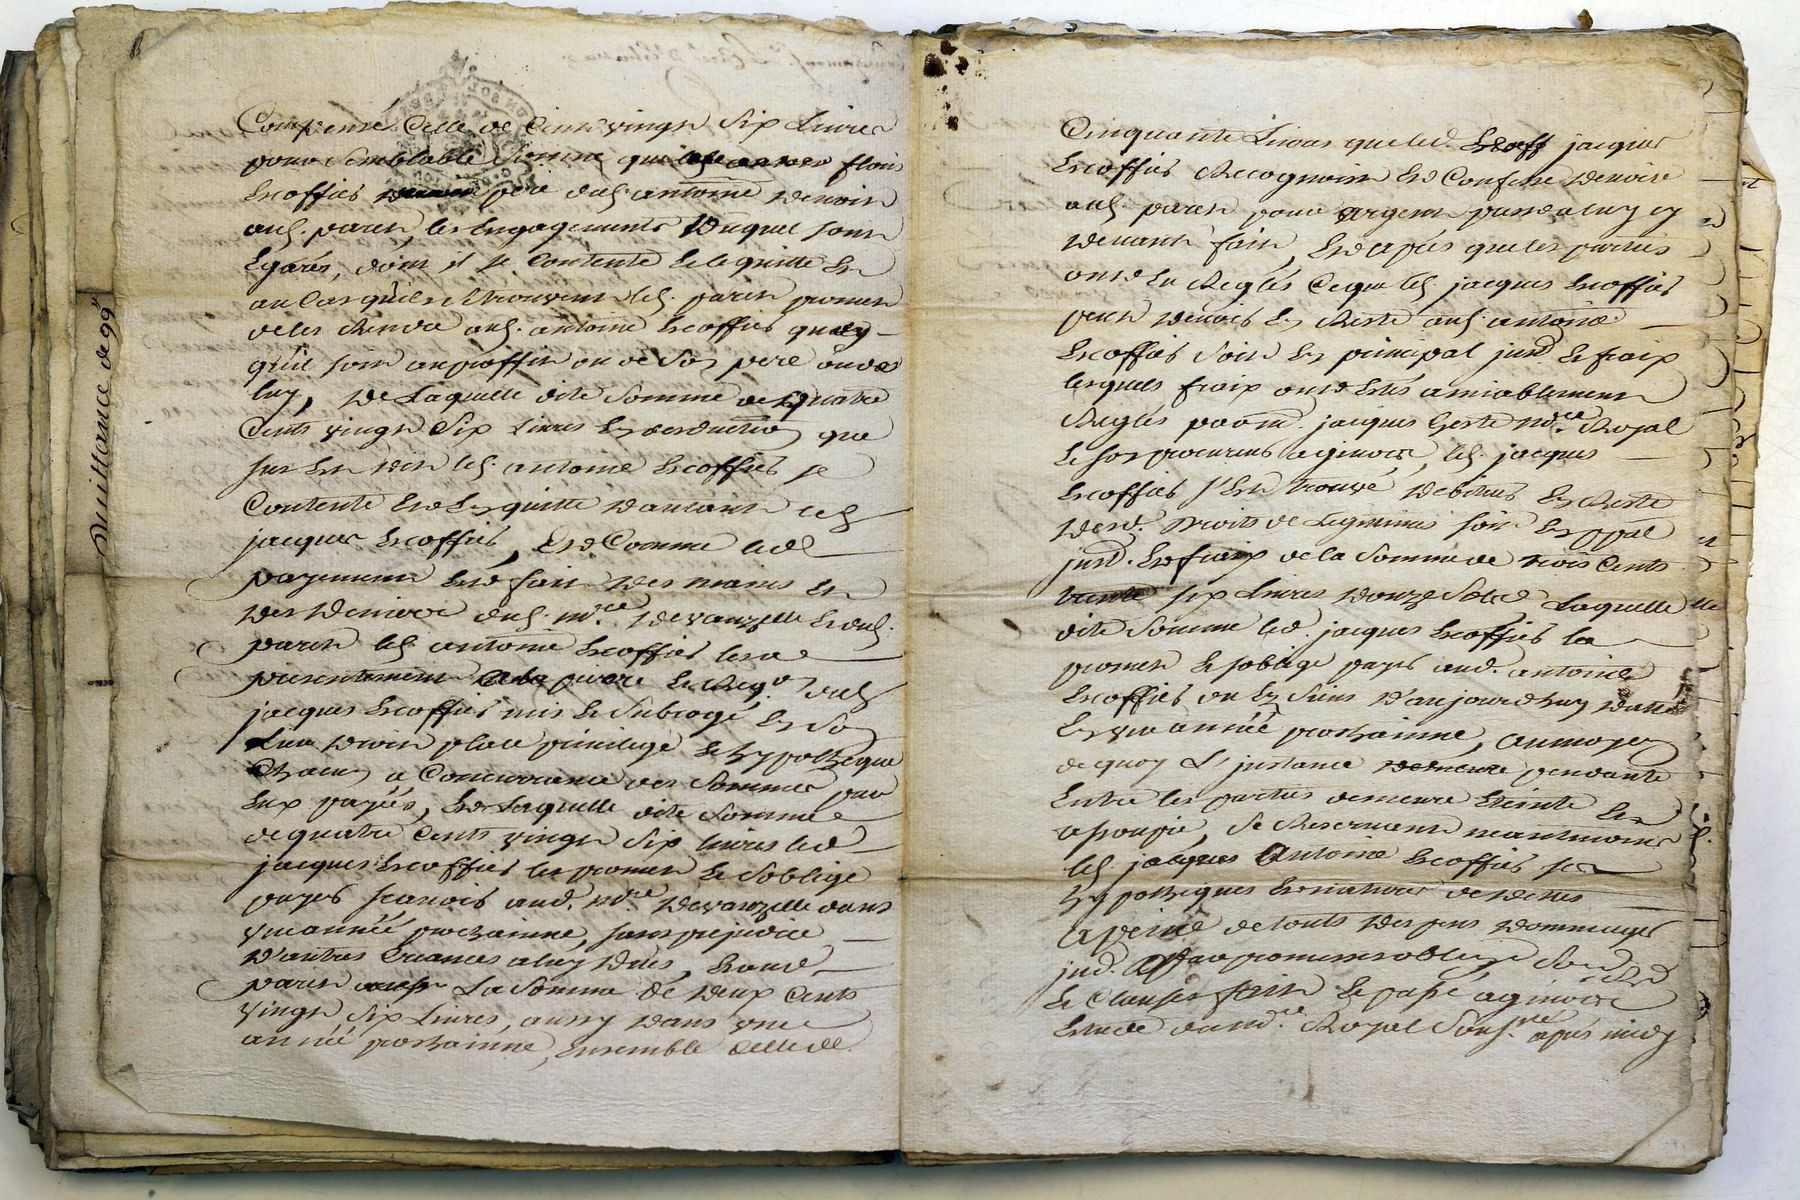 Quittance de 99
Compensé Celle de Cent vingt Six Livres
pour Semblable Somme que
Escoffier pere dud. antoine devoit
aud. paret, les Engagements duquel sont
Egarés, dont il se Contente Et le quitte Et
au Cas qu'ils se trouvent led. paret promet
de les Rendre aud. antoine Escoffier quoy
qu'il soit au proffit ou de Son pere ou de
luy, de Laquelle dite Somme de quatre
Cents vingt Six Livres En deduction que
led. antoine Escoffier se
Contente Et En quitte d'autant led.
jacques Escoffier, Et Comme led.
payement Est fait des mains Et
des deniers dud. me. devauzelle Et dud.
paret led. antoine Escoffier les a
presentement a la priere Et Reqon. dud.
jacques Escoffier mis Et Subrogé En Son
Lieu droit place privilege Et hypotheque
Chacun a Concurrance des Sommes par
Eux payées, Et Laquelle dite Somme
de quatre Cents vingt Six livres led.
jacques Escoffier les promet Et S'oblige
payer scavoir aud. me. devauzelle dans
une année prochainne, sans prejudice
d'autres Creances a luy dües, Et aud.
paret La Somme de deux Cents
vingt Six Livres, aussy dans une
année prochainne, Ensemble Celle de
Cinquante Livres que led. jacques
Escoffier Recognoit Et Confesse devoir
aud. paret pour argent presté a luy cy
devant fait, Et apres que les parties
ont Eu Reglés Ce que led. jacques Escoffier
peut devoir En Reste aud. antoine
Escoffier Soit En principal jnd. Et fraix
lesquels fraix ont Estés amiablement
Reglés par me. jacques Royal
Et Son procureur aginois, led. jacques
Escoffier s'Est trouvé debiteur En Reste
desd. Droits de Legitimes soit En ppal
jnd. Et fraix de la Somme de trois Cents
trente six Livres douze Sols Laquelle
dite Somme led. jacques Escoffier la
promet Et s'oblige payer aud. antoine
Escoffier ou Es Siens d'aujourdhuy dans
En une année prochainne, au moyen
de quoy L'jnstance pendante
Entre les parties demeure Eteinte Et
assoupie, Se Reservants neantmoins
led. jacques antoine Escoffier ses
hypotheques Et natures de dettes
a peine de touts despens dommages
jnd.
Et Clauses fait Et passé
Etude dud. me. Royal Sousne. apres midy